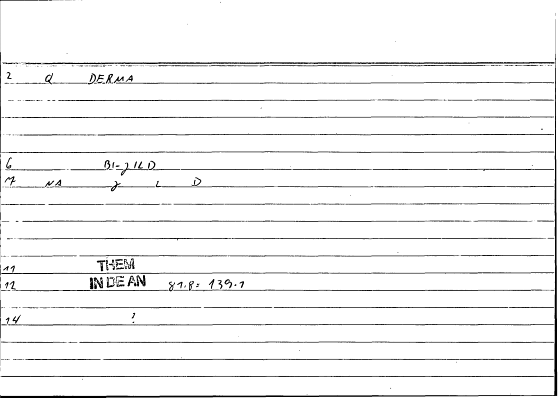 2 Q DERMA
6 BI-γ ILD
7 NA γ L D
11 THEM
12 INDEAN 81.8= 139.1
14 ?